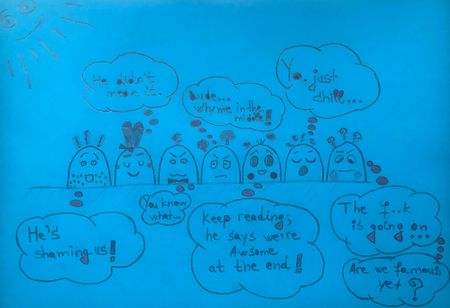 He didn't
mean it...
Dude...
why me in the
middle!
Yo, just
chill...
You know
what...
He's
shaming us!
Keep reading;
he says we're
Awsome
at the end!
The f..k
is going on...
Are we famous
yet?